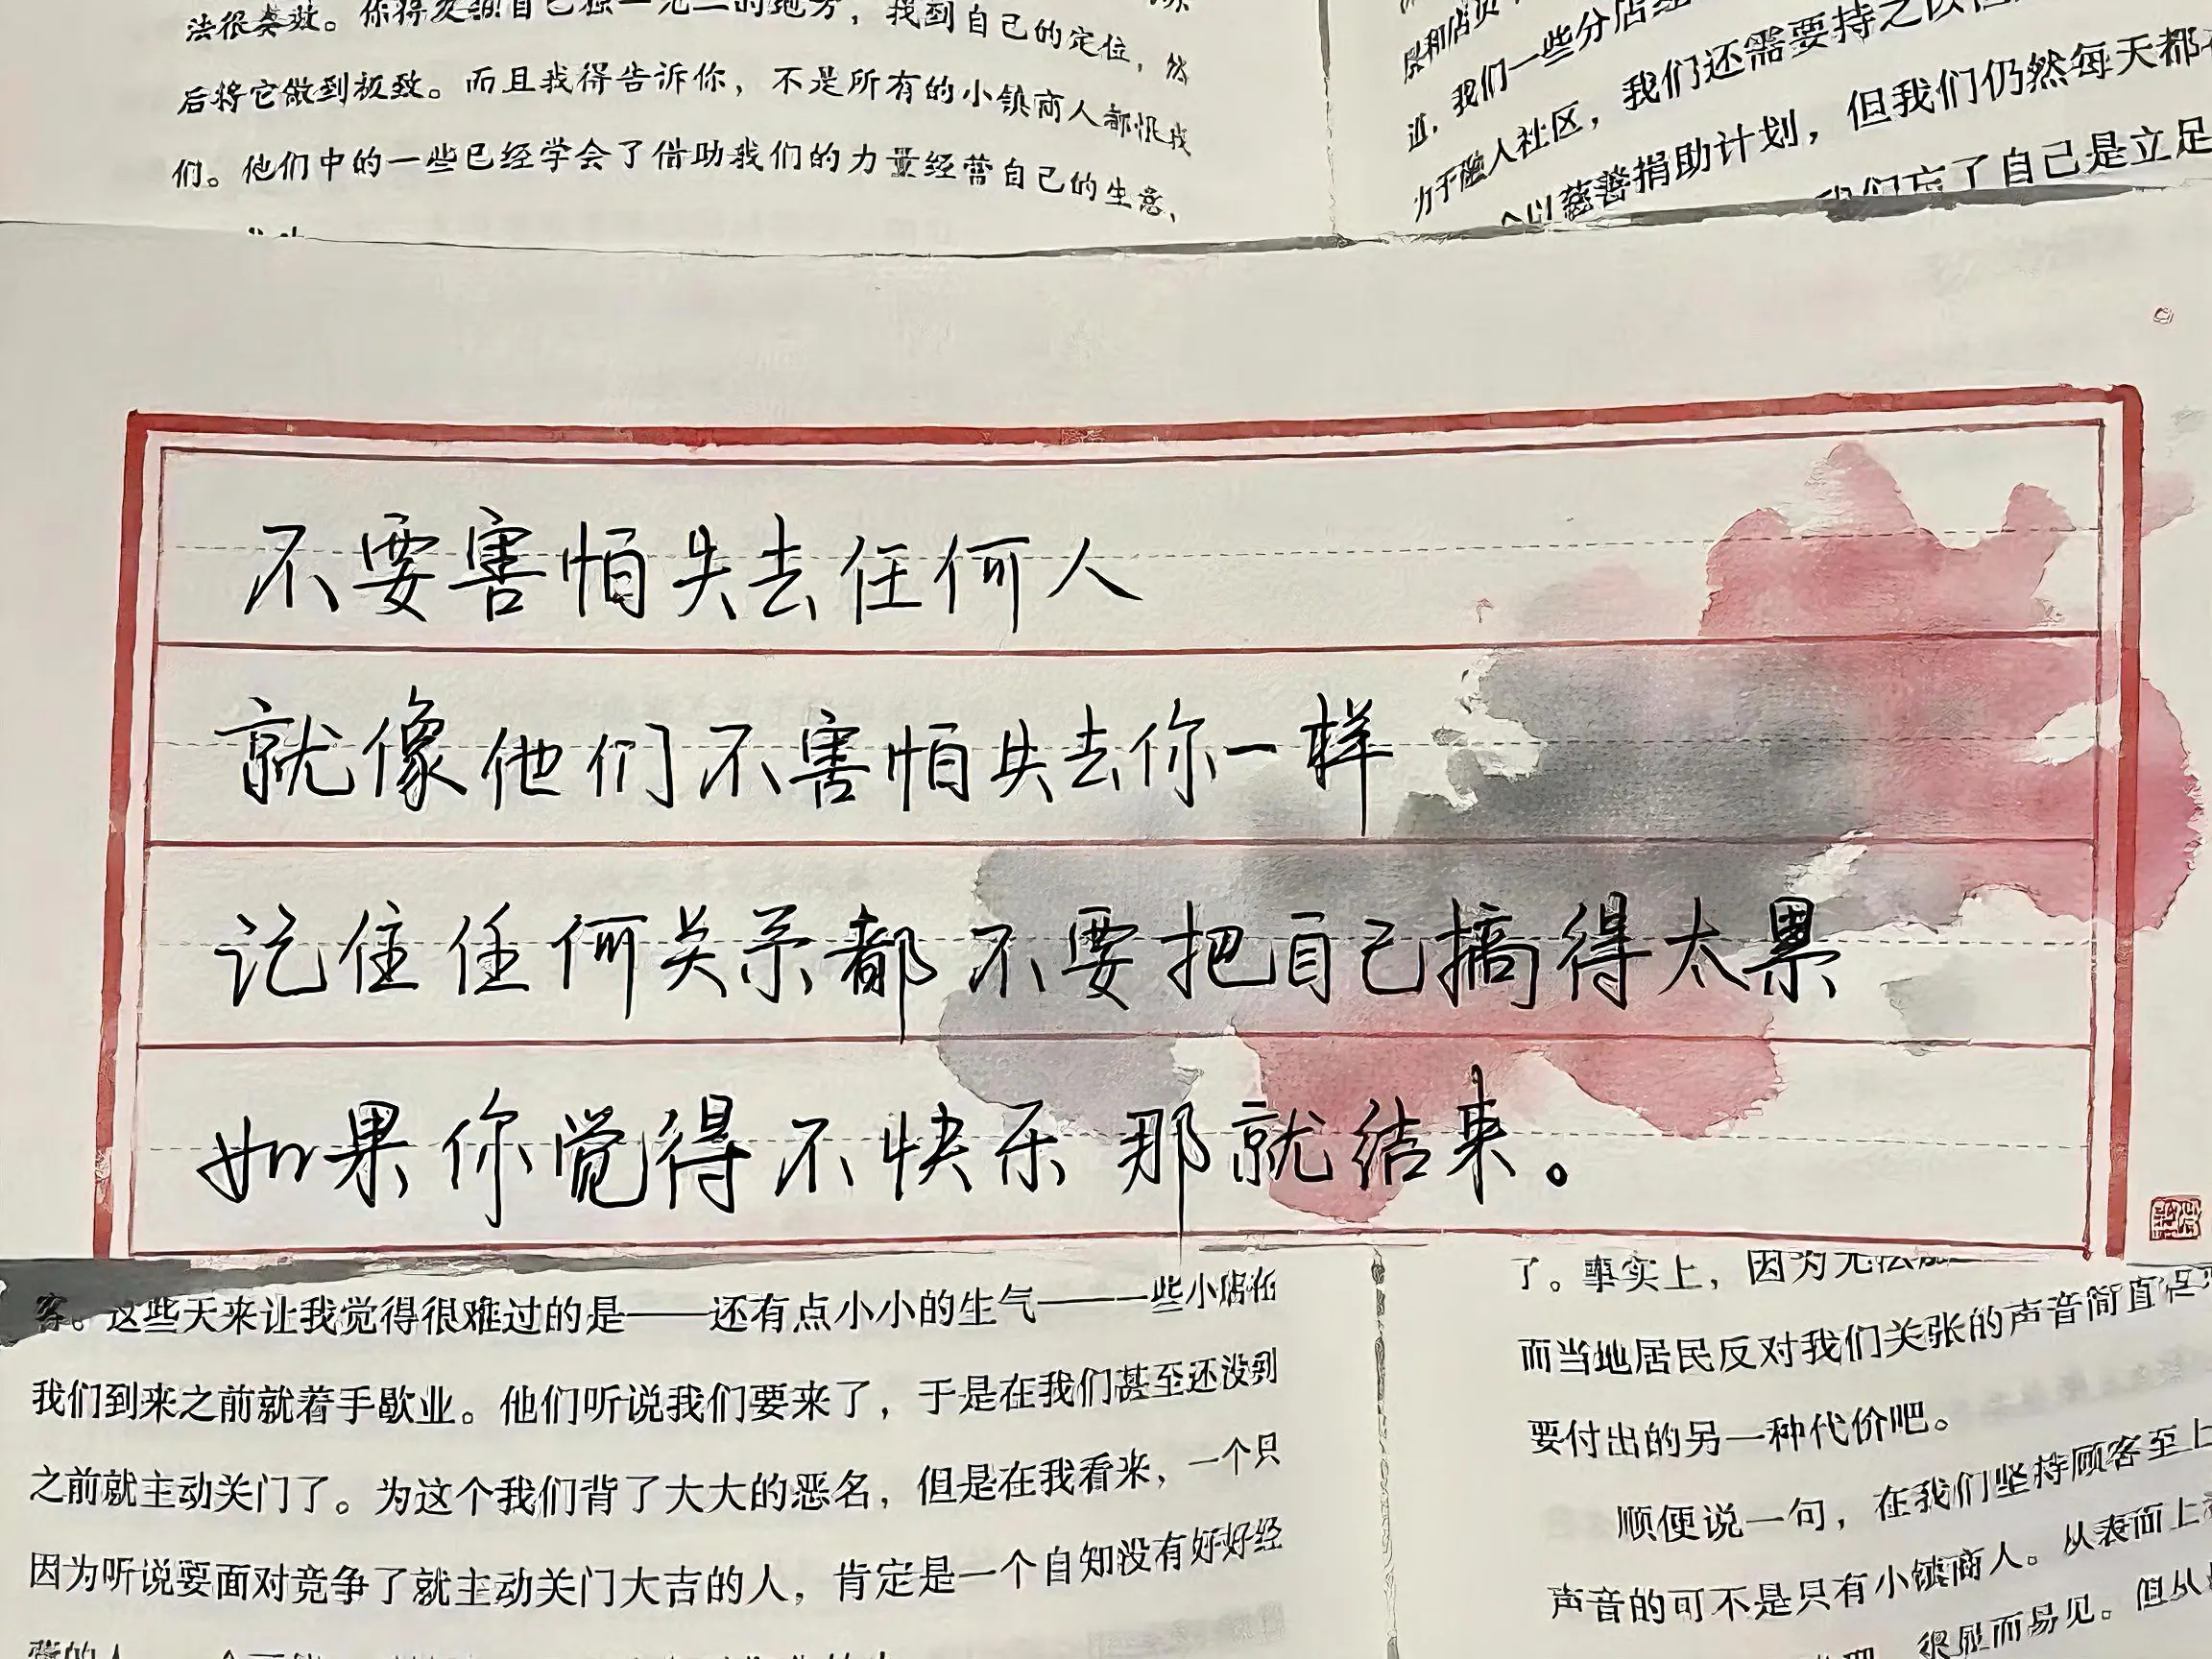 法很奏效。你得发掘自己独一无二的地方，找到自己的定位，然
后将它做到极致。而且我得告诉你，不是所有的小镇商人都恨我
们。他们中的一些已经学会了借助我们的力量经营自己的生意、
我们一些分店经
近，我们还需要持之以恒
力于融入社区，但我们仍然每天都
以慈善捐助计划，
我们忘了自己是立足
不要害怕失去任何人
就像他们不害怕失去你一样
记住任何关系都不要把自己搞得太累
如果你觉得不快乐 那就结束。
客。这些天来让我觉得很难过的是——还有点小小的生气——一些小店在
我们到来之前就着手歇业。他们听说我们要来了，于是在我们甚至还没到
之前就主动关门了。为这个我们背了大大的恶名，但是在我看来，一个只
因为听说要面对竞争了就主动关门大吉的人，肯定是一个自知没有好好经
了。事实上，因为无法
而当地居民反对我们关张的声音简直
要付出的另一种代价吧。
顺便说一句，在我们坚持顾客至上
声音的可不是只有小镇商人。从表面上
很显而易见。但从